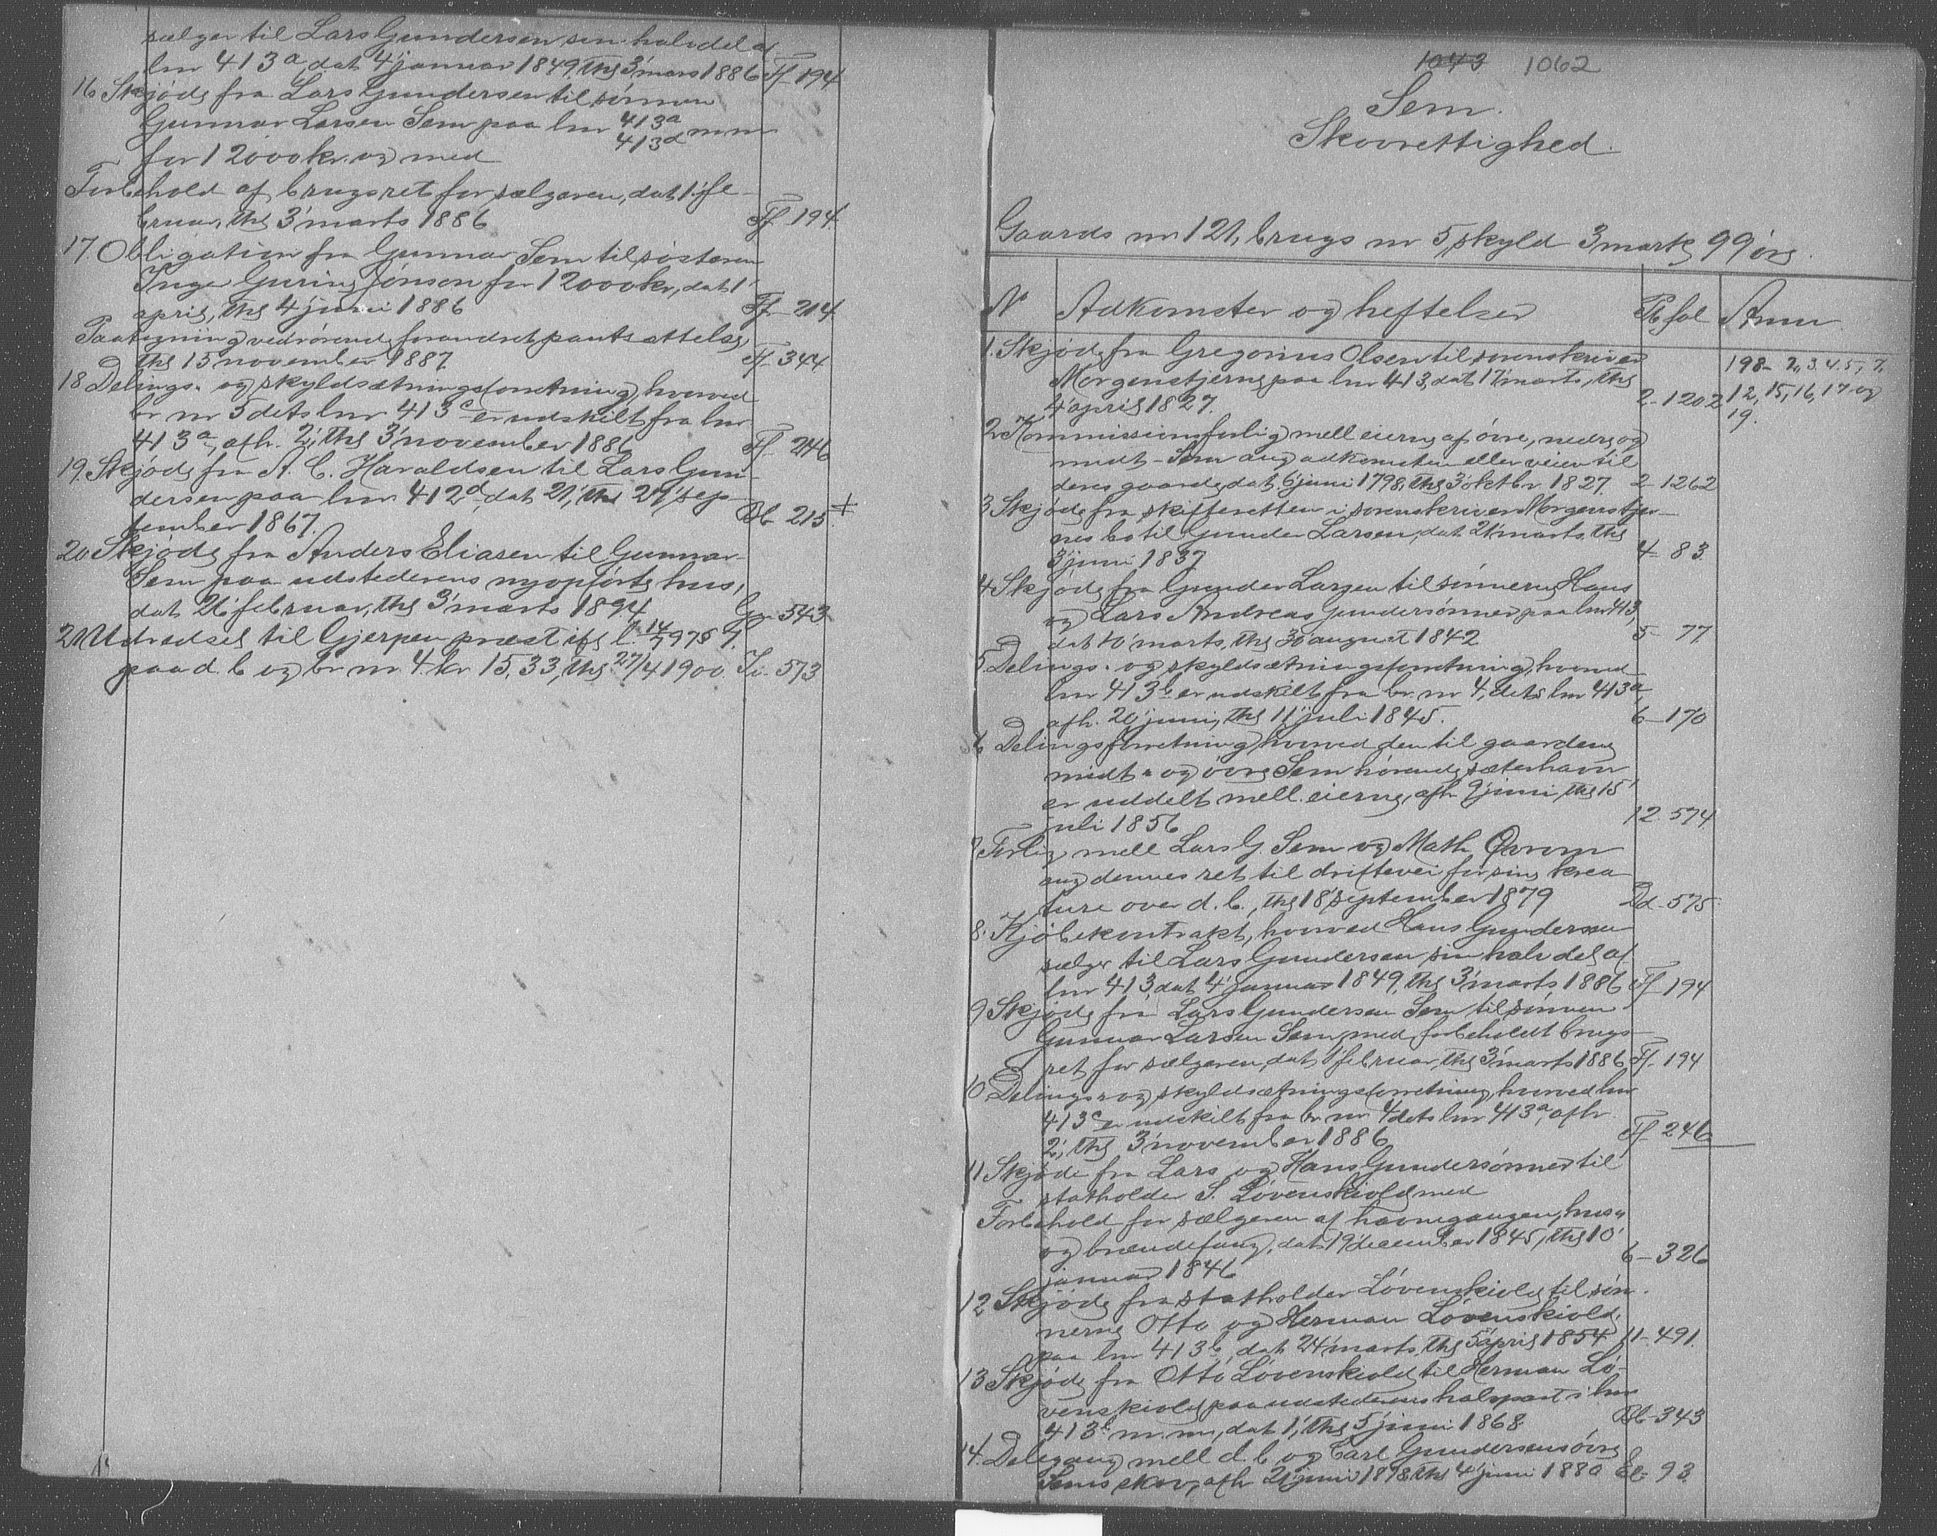 sælger til Lars Gundersen sin halvdel af
lnr 413a, dat 4 januar 1849, thg 3 mars 1886 Ff 194
16 Skjøde fra Lars Gundersen til sønnen
Gunnar Larsen Sem paa lnr 413a 413d m m
for 12000 kr. og med
Forbehold af brugsret for sælgeren, dat 1 fe-
bruar, thg 3' marts 1886 Ff 194
17 Obligation fra Gunnar Sem til søsteren
Inge Guring Jønsen for 12000 kr, dat 1'
april, thg 4' juni 1886 Ff 214
Paategning vedrørende forandret pantsættelse,
thg 15 november 1887 Ff 344
18 Delings- og skyldsætningsforretning, hvorved
br nr 5 dets lnr 413c er udskilt fra lnr
413a, afh. 2', thg 3' november 1886 Ff 246
19. Skjøde fra A. C. Haraldsen til Lars Gun-
dersen paa lnr 412d, dat 21', thg 27' sep-
tember 1867. Bb 215 +
20 Skjøde fra Anders Eliasen til Gunnar
Sem paa udstederens nyopførte hus,
dat 26' februar, thg 3' marts 1894 Gg 543
21 Udredsel til Gjerpen præsti
paa d. b og br nr 4. kr 15,33, thg 27/4 1900. 573
1043 1062
Sem.
Skovrettighed.
Gaards nr 121, brugs nr 5, skyld 3 mark 99 øre.
Nº Adkomster og heftelser Pb fol Anm
1. Skjøde fra Gregorius Olsen til sorenskriver
198- 2, 3, 4. 5, 7.
Morgenstjerne paa lnr 413, dat 17' marts, thg
12, 15, 16, 17 og
4' april 1827. 2-1202
19.
2 Kommissionsforlig mell eierne af øvre, nedre og
midt-Sem ang adkomsten eller veien til
deres gaarde, dat 6 juni 1798, thg 3' oktbr 1827. 2-1262
3 Skjøde fra skifteretten i sorenskriver Morgenstjer-
nes bo til Gunder Larsen, dat 21' marts thg
3' juni 1837 4- 83.
4 Skjøde fra Gunder Larsen til sønnerne Hans
og Lars Andreas Gundersønner paa lnr 413,
dat 10' marts, thg 30' august 1842 5- 77
5 Delings- og skyldsætningsforretning, hvorved
lnr 413b er udskilt fra br. nr 4, dets lnr 413a
afh. 20' juni, thg 11' juli 1845. 6-170
6 Delingsforretning, hvorved den til gaardene
midt- og øvre Sem hørende sæterhavn
er uddelt mell. eierne, afh 9' juni, thg 15'
juli 1856 12-574
7 Forlig mell Lars G. Sem og Math
ang dennes ret til driftevei for sine krea-
ture over d. b., thg 18' september 1879 Dd-575.
8. Kjøbekontrakt, hvorved Hans Gundersen
sælger til Lars Gundersen sin halvdel af
lnr 413 dat 4' januar 1849, thg 3' marts 1886 Ff 194
9 Skjøde fra Lars Gundersen Sem til sønnen
Gunnar Larsen Sem, med forbeholdt brugs-
ret for sælgeren, dat 1' februar, thg 3' marts 1886 Ff. 194
10 Delings- og skyldsætningsforretning, hvorved lnr
413c er udskilt fra br nr 4 dets lnr 413a, afh
2', thg 3' november 1886 Ff 246
11 Skjøde fra Lars og Hans Gundersønner til
statholder S. Løvenskiold med
Forbehold for sælgeren af havnegangen, hus-
og brændefang, dat 19' december 1845, thg 10'
januar 1846 6-326
12 Skjøde fra statholder Løvenskiold til søn-
nerne Otto og Herman Løvenskiold,
paa lnr 413b, dat 24' marts, thg 5' april 1854 11-491.
13 Skjøde fra Otto Løvenskiold til Herman Lø-
venskiold paa udstederens halvpart i lnr
413b m. m., dat 1', thg 5' juni 1868. Bb-343
14. Delegang mell d. b og Carl Gundersens øvre
Sems skov, afh 21' juni 1878 thg 4' juni 1880 Ee- 93.